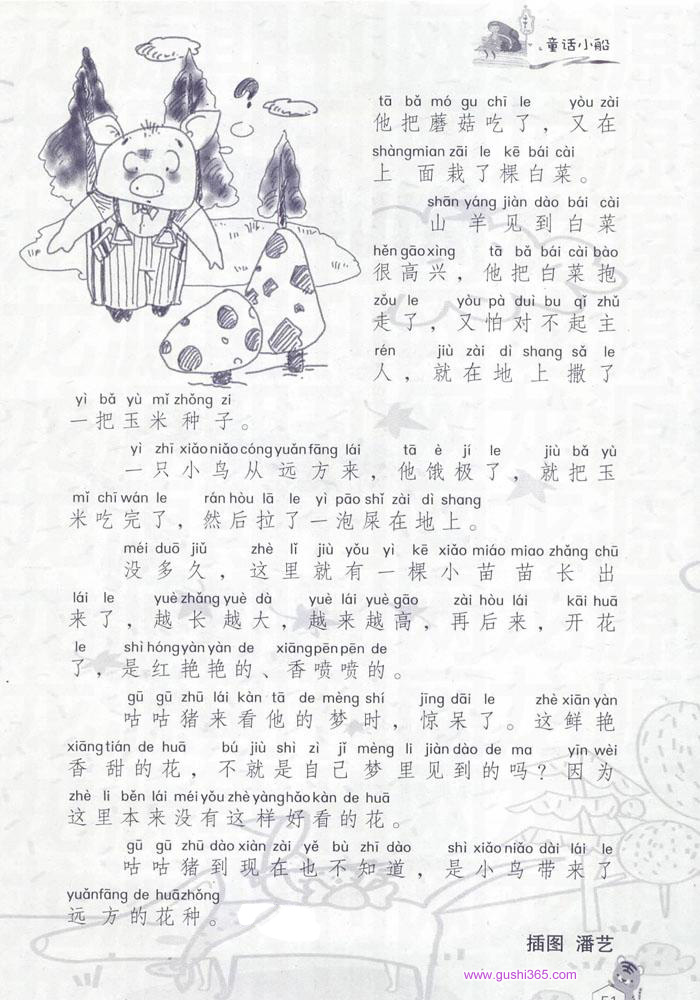 童话小船
tā bǎ mó gu chī le yòu zài
他把蘑菇吃了，又在
shàngmian zāi le kē bái cài
上面栽了棵白菜。
shān yáng jiàn dào bái cài
山羊见到白菜
hěn gāo xìng tā bǎ bái cài bào
很高兴，他把白菜抱
zǒu le yòu pà duì bu qǐ zhǔ
走了，又怕对不起主
rén jiù zài dì shang sǎ le
人，就在地上撒了
yì bǎ yù mǐ zhǒng zi
一把玉米种子。
yì zhī xiǎo niǎo cóng yuǎn fāng lái tā è jí le jiù bǎ yù
一只小鸟从远方来，他饿极了，就把玉
mǐ chī wán le rán hòu lā le yì pāo shǐ zài dì shang
米吃完了，然后拉了一泡屎在地上。
méi duō jiǔ zhè lǐ jiù yǒu yì kē xiǎo miáo miao zhǎng chū
没多久，这里就有一棵小苗苗长出
lái le yuè zhǎng yuè dà yuè lái yuè gāo zài hòu lái kāi huā
来了，越长越大，越来越高，再后来，开花
le shì hóng yàn yàn de xiāng pēn pēn de
了，是红艳艳的、香喷喷的。
gū gū zhū lái kàn tā de mèng shí jīng dāi le zhè xiān yàn
咕咕猪来看他的梦时，惊呆了。这鲜艳
xiāng tián de huā bú jiù shì zì jǐ mèng li jiàn dào de ma yīn wèi
香甜的花，不就是自己梦里见到的吗？因为
zhè li běn lái méi yǒu zhè yàng hǎo kàn de huā
这里本来没有这样好看的花。
gū gū zhū dào xiàn zài yě bù zhī dào shì xiǎo niǎo dài lái le
咕咕猪到现在也不知道，是小鸟带来了
yuǎn fāng de huā zhǒng
远方的花种。
插图 潘艺
www.gushi365.com